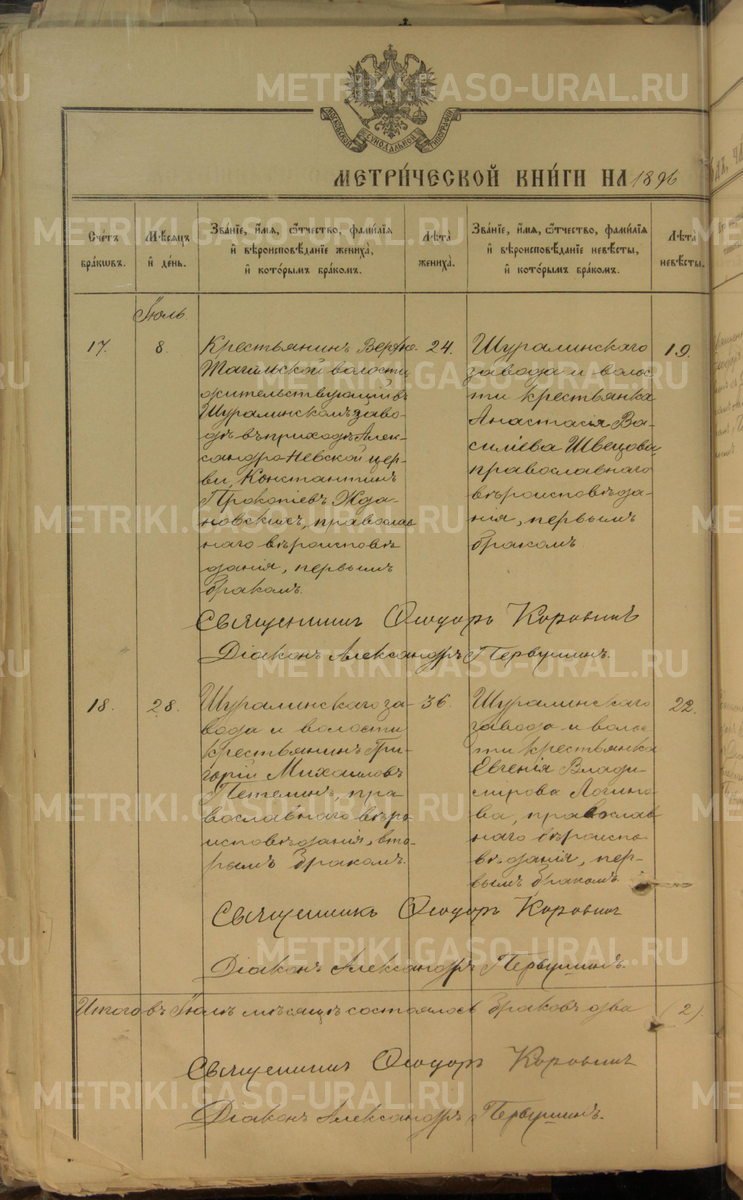 МОСКОВСКОЙ СѴНОДАЛЬНОЙ ТИПОГРАФІИ
МЕТРИ́ЧЕСКОЙ КНИ́ГИ НА 1896
Счетъ
бра́кѡвъ.
Мѣ́сяцъ
и҆ де́нь.
Зва́нїе, и҆́мя, ѻ҆́тчество, фами́лїя
и҆ вѣроисповѣ́данїе жениха̀,
и҆ кото́рымъ бра́комъ.
Лѣ́та
жениха̀.
Зва́нїе, и҆́мя, ѻ҆́тчество, фами́лїя
и҆ вѣроисповѣ́данїе невѣ́сты,
и҆ кото́рымъ бра́комъ.
Лѣ́та
невѣ́сты.
Іюль
17.
8.
Крестьянинъ Верхно-
Тагильской волости
жительствующій въ
Шуралинскомъ заво-
дѣ въ приходѣ Алек-
сандро-Невской цер-
кви, Константинъ
Прокопіевъ Жда-
новскихъ, православ-
наго вѣроисповѣ-
данія, первымъ
бракомъ.
24.
Шуралинскаго
завода и волос-
ти крестьянка
Анастасія Ва-
силіева Швецова,
православнаго
вѣроисповѣда-
нія, первымъ
бракомъ.
19.
Священникъ Ѳеодоръ Коровинъ
Діаконъ Александръ Первушинъ.
18.
28.
Шуралинскаго за-
вода и волости
крестьянинъ Гри-
горій Михаиловъ
Петелинъ, пра-
вославнаго вѣро-
исповѣданія, вто-
рымъ бракомъ.
36.
Шуралинскаго
завода и волос-
ти крестьянка
Евгенія Влади-
мірова Логино-
ва, православ-
наго вѣроиспо-
вѣданія, пер-
вымъ бракомъ.
22.
Священникъ Ѳеодоръ Коровинъ
Діаконъ Александръ Первушинъ.
Итого въ Іюлѣ мѣсяцѣ состоялось браковъ два (2)
Священникъ Ѳеодоръ Коровинъ
Діаконъ Александръ Первушинъ.
METRIKI.GASO-URAL.RU